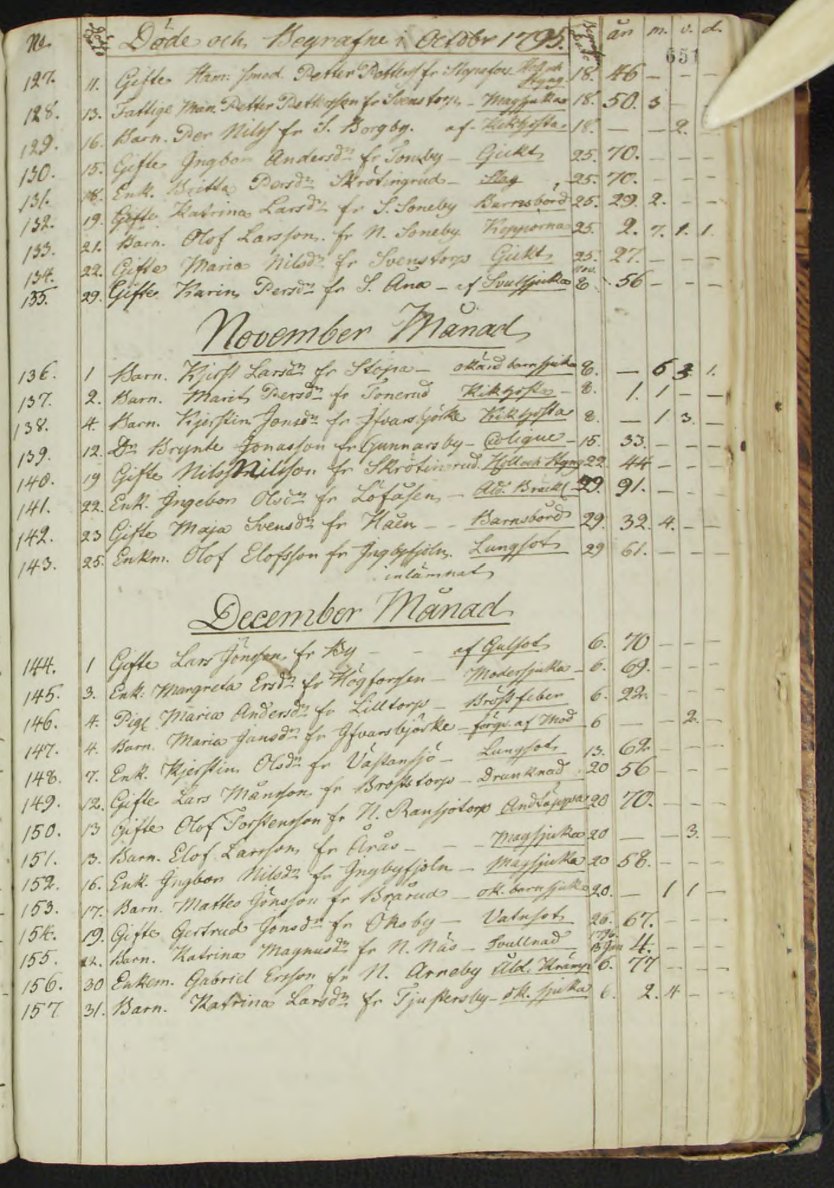 No. Döde och Begrafne i Octobr 1795. år m. v. d.
651
127. 11. Gifte Ham: smed Petter Håll och Styng 18. 46 — — —
128. 13. Fattige Man. Petter Pettersson fr Svenstorp — Magsjuka 18. 50. 3 — —
129. 16. Barn. Per Nilss fr S. Borgby. af Kikhosta 18. — — 2. —
130. 15. Gifte Ingbor Andersdr fr Soneby — Gickt 25. 70. — — —
131. 18. Enk. Britta Persdr Skrötingrud — Slag 25. 70. — — —
132. 19. Gifte Katrina Larsdr fr S. Soneby Barnsbörd 25. 29. 2. — —
133. 21. Barn. Olof Larsson fr N. Soneby Kopporna 25. 2. 7. 1. 1.
134. 22. Gifte Maria Nilsdr fr Svenstorp Gickt 25. 27. — — —
135. 29. Gifte Karin Persdr fr S. Åna — af Svulsjuka Nov. 8. 56 — — —
November Månad
136. 1 Barn. Kjerst Larsdr fr Stöpa — okänd barnsjuka 8. — 6 3 1.
137. 2. Barn. Marit Persdr fr Tonerud Kikhosta — 8. 1. 1 — —
138. 4. Barn. Kjerstin Jonsdr fr Ifvarsbjörke Kikhosta 8 — 1 3. —
139. 12. Dr Brynte Jonasson fr Gunnarsby — Colique — 15. 33. — — —
140. 19 Gifte Nils Nilsson fr Skrötingrud. Håll och Styng 22. 44 — — —
141. 22. Enk. Ingebor Olsdr fr Löfåsen — Ald. Bräckl. 29. 91. — — —
142. 23 Gifte Maja Svensdr fr Haen — — Barnsbörd 29. 32. 4. — —
143. 25. Enkm. Olof Elofsson fr Ingbyfjoln. Lungsot 29 61. — — —
inlämnat
December Månad
144. 1 Gifte Lars Jönsson fr By — — af Gulsot 6. 70 — — —
145. 3. Enk. Margreta Ersdr fr Högforsen — Modersjuka — 6. 69. — — —
146. 4. Pig. Maria Andersdr fr Lilltorp — Bröstfeber 6. 22. — — —
147. 4. Barn. Maria Jansdr fr Ifvarsbjörke — af Mod 6 — — 2. —
148. 7. Enk. Kjerstin Olsdr fr Västansjö — Lungsot 13. 62 — — —
149. 12. Gifte Lars Månsson fr Brostorp — Drunknad 20 56 — — —
150. 13 Gifte Olof Torstensson fr N. Ransjötorp Andtäppa 20 70. — — —
151. 13. Barn. Elof Larsson fr Årås — — Magsjuka 20 — — 3. —
152. 16. Enk. Ingbor Nilsdr fr Ingbyfjoln — Magsjuka 20 58. — — —
153. 17. Barn. Mattes Jönsson fr Brårud — ok. barnsjuka 20. — 1 1 —
154. 19. Gifte Gertrud Jonsdr fr Oksby — Vatusot 26. 67. — — —
155. Barn. Katrina Magnusdr fr N. Näs — Svullnad 1796. Jan 4. — — —
156. 30 Enkem. Gabriel Ersson fr N. Arneby Åld. Kramp 6. 77 — — —
157 31. Barn. Katrina Larsdr fr Tjustersby — ok. sjuka 6. 2. 4 — —